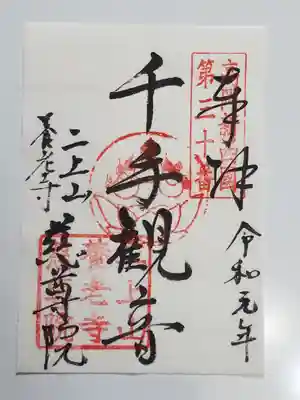 第二十番
奉拝
令和元年
千手観音
二上山
養老寺
慈尊院
二上山
養老寺